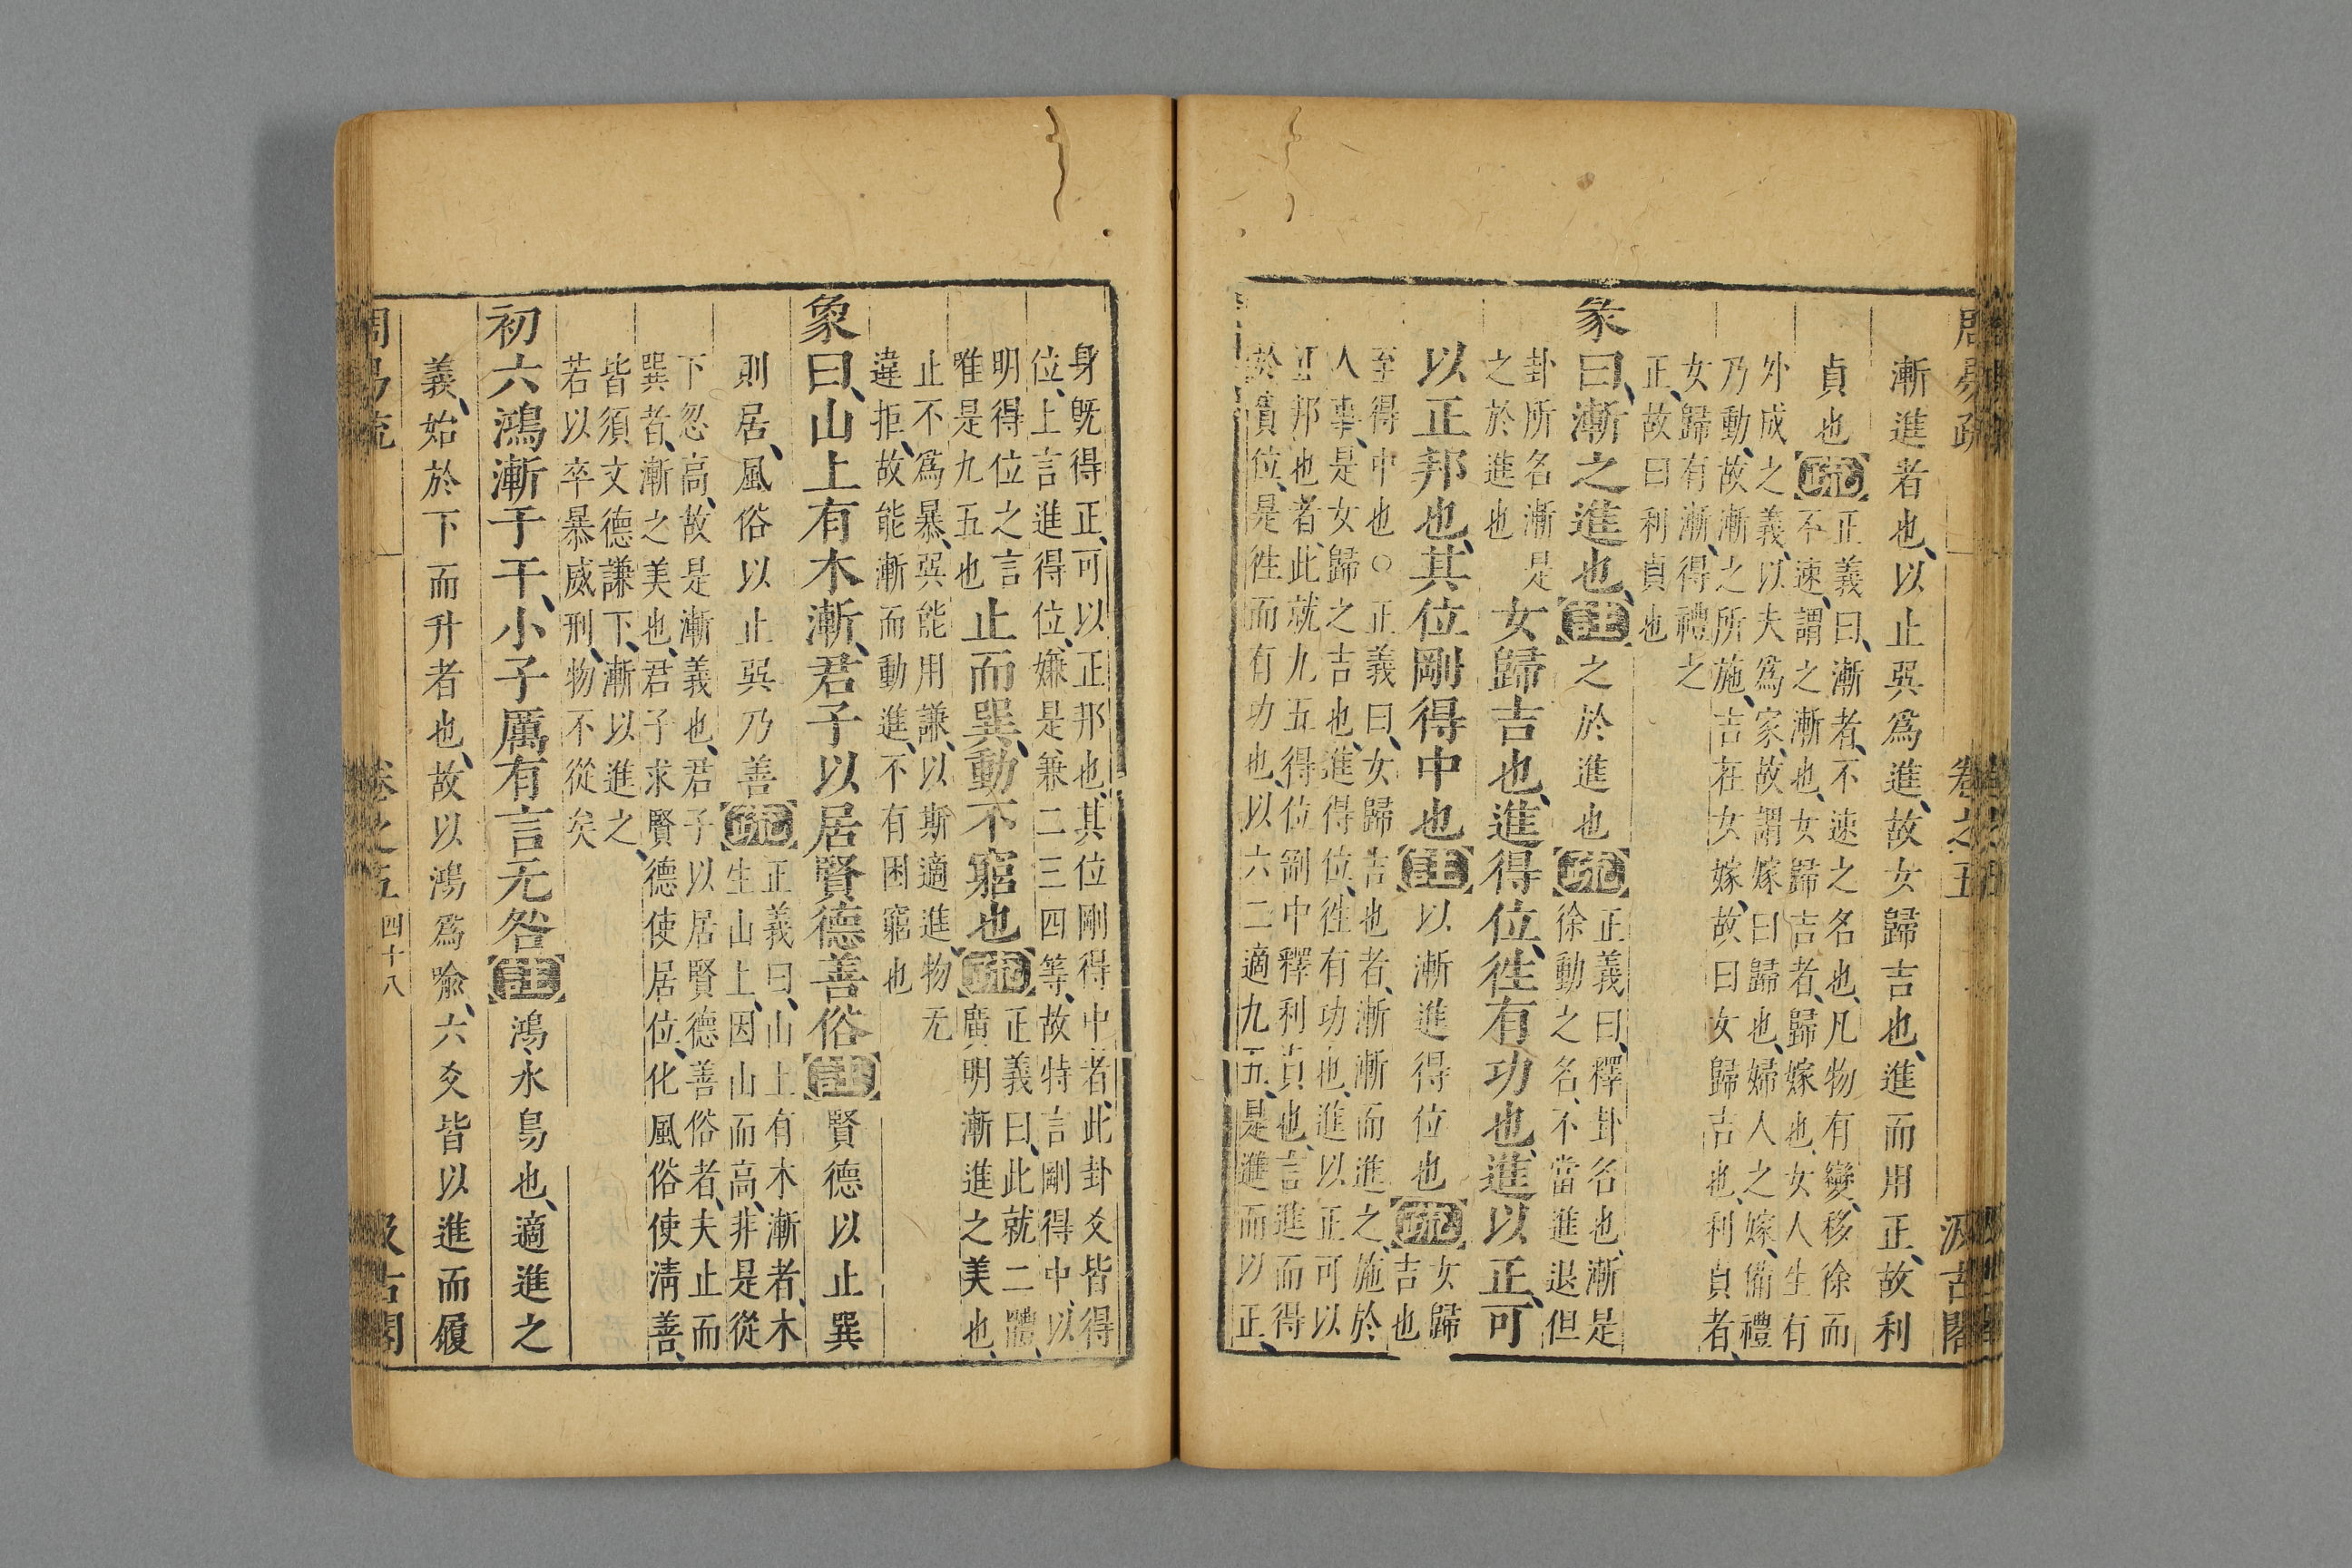 周易疏 卷之五 汲古閣
漸進者也、以止巽爲進、故女歸吉也、進而用正、故利
貞也 疏 正義曰、漸者、不速之名也、凡物有變、移徐而
不速、謂之漸也、女歸吉者、歸嫁也、女人生有
外成之義、以夫爲家、故謂嫁曰歸也、婦人之嫁、備禮
乃動、故漸之所施、吉在女嫁、故曰女歸吉也、利貞者、
女歸有漸、得禮之
正、故曰利貞也
彖曰、漸之進也、 註 之於進也 疏 正義曰、釋卦名也、漸是
徐動之名、不當進退但
卦所名漸是
之於進也
女歸吉也、進得位、往有功也、進以正、可
以正邦也、其位剛得中也 註 以漸進得位也 疏 女歸
吉也
至得中也○正義曰、女歸吉也者、漸漸而進之、施於
人事、是女歸之吉也、進得位、往有功也、進以正可以
正邦也者、此就九五得位剛中釋利貞也、言進而得
於貴位、是往而有功也、以六二適九五、是進而以正、
身旣得正、可以正邦也、其位剛得中者、此卦爻皆得
位、上言進得位、嫌是兼二三四等、故特言剛得中、以
明得位之言
唯是九五也
止而巽、動不窮也 疏 正義曰、此就二體、
廣明漸進之美也、
止不爲暴、巽能用謙、以斯適進物无
違拒、故能漸而動進、不有困窮也
象曰、山上有木漸、君子以居賢德善俗 註 賢德以止巽
則居、風俗以止巽乃善 疏 正義曰、山上有木漸者、木
生山上、因山而高、非是從
下忽高、故是漸義也、君子以居賢德善俗者、夫止而
巽者、漸之美也、君子求賢德使居位、化風俗使淸善、
皆須文德謙下、漸以進之、
若以卒暴威刑、物不從矣
初六鴻漸于干、小子厲有言无咎 註 鴻、水鳥也、適進之
義、始於下而升者也、故以鴻爲喩、六爻皆以進而履
周易疏 卷之五 四十八 汲古閣